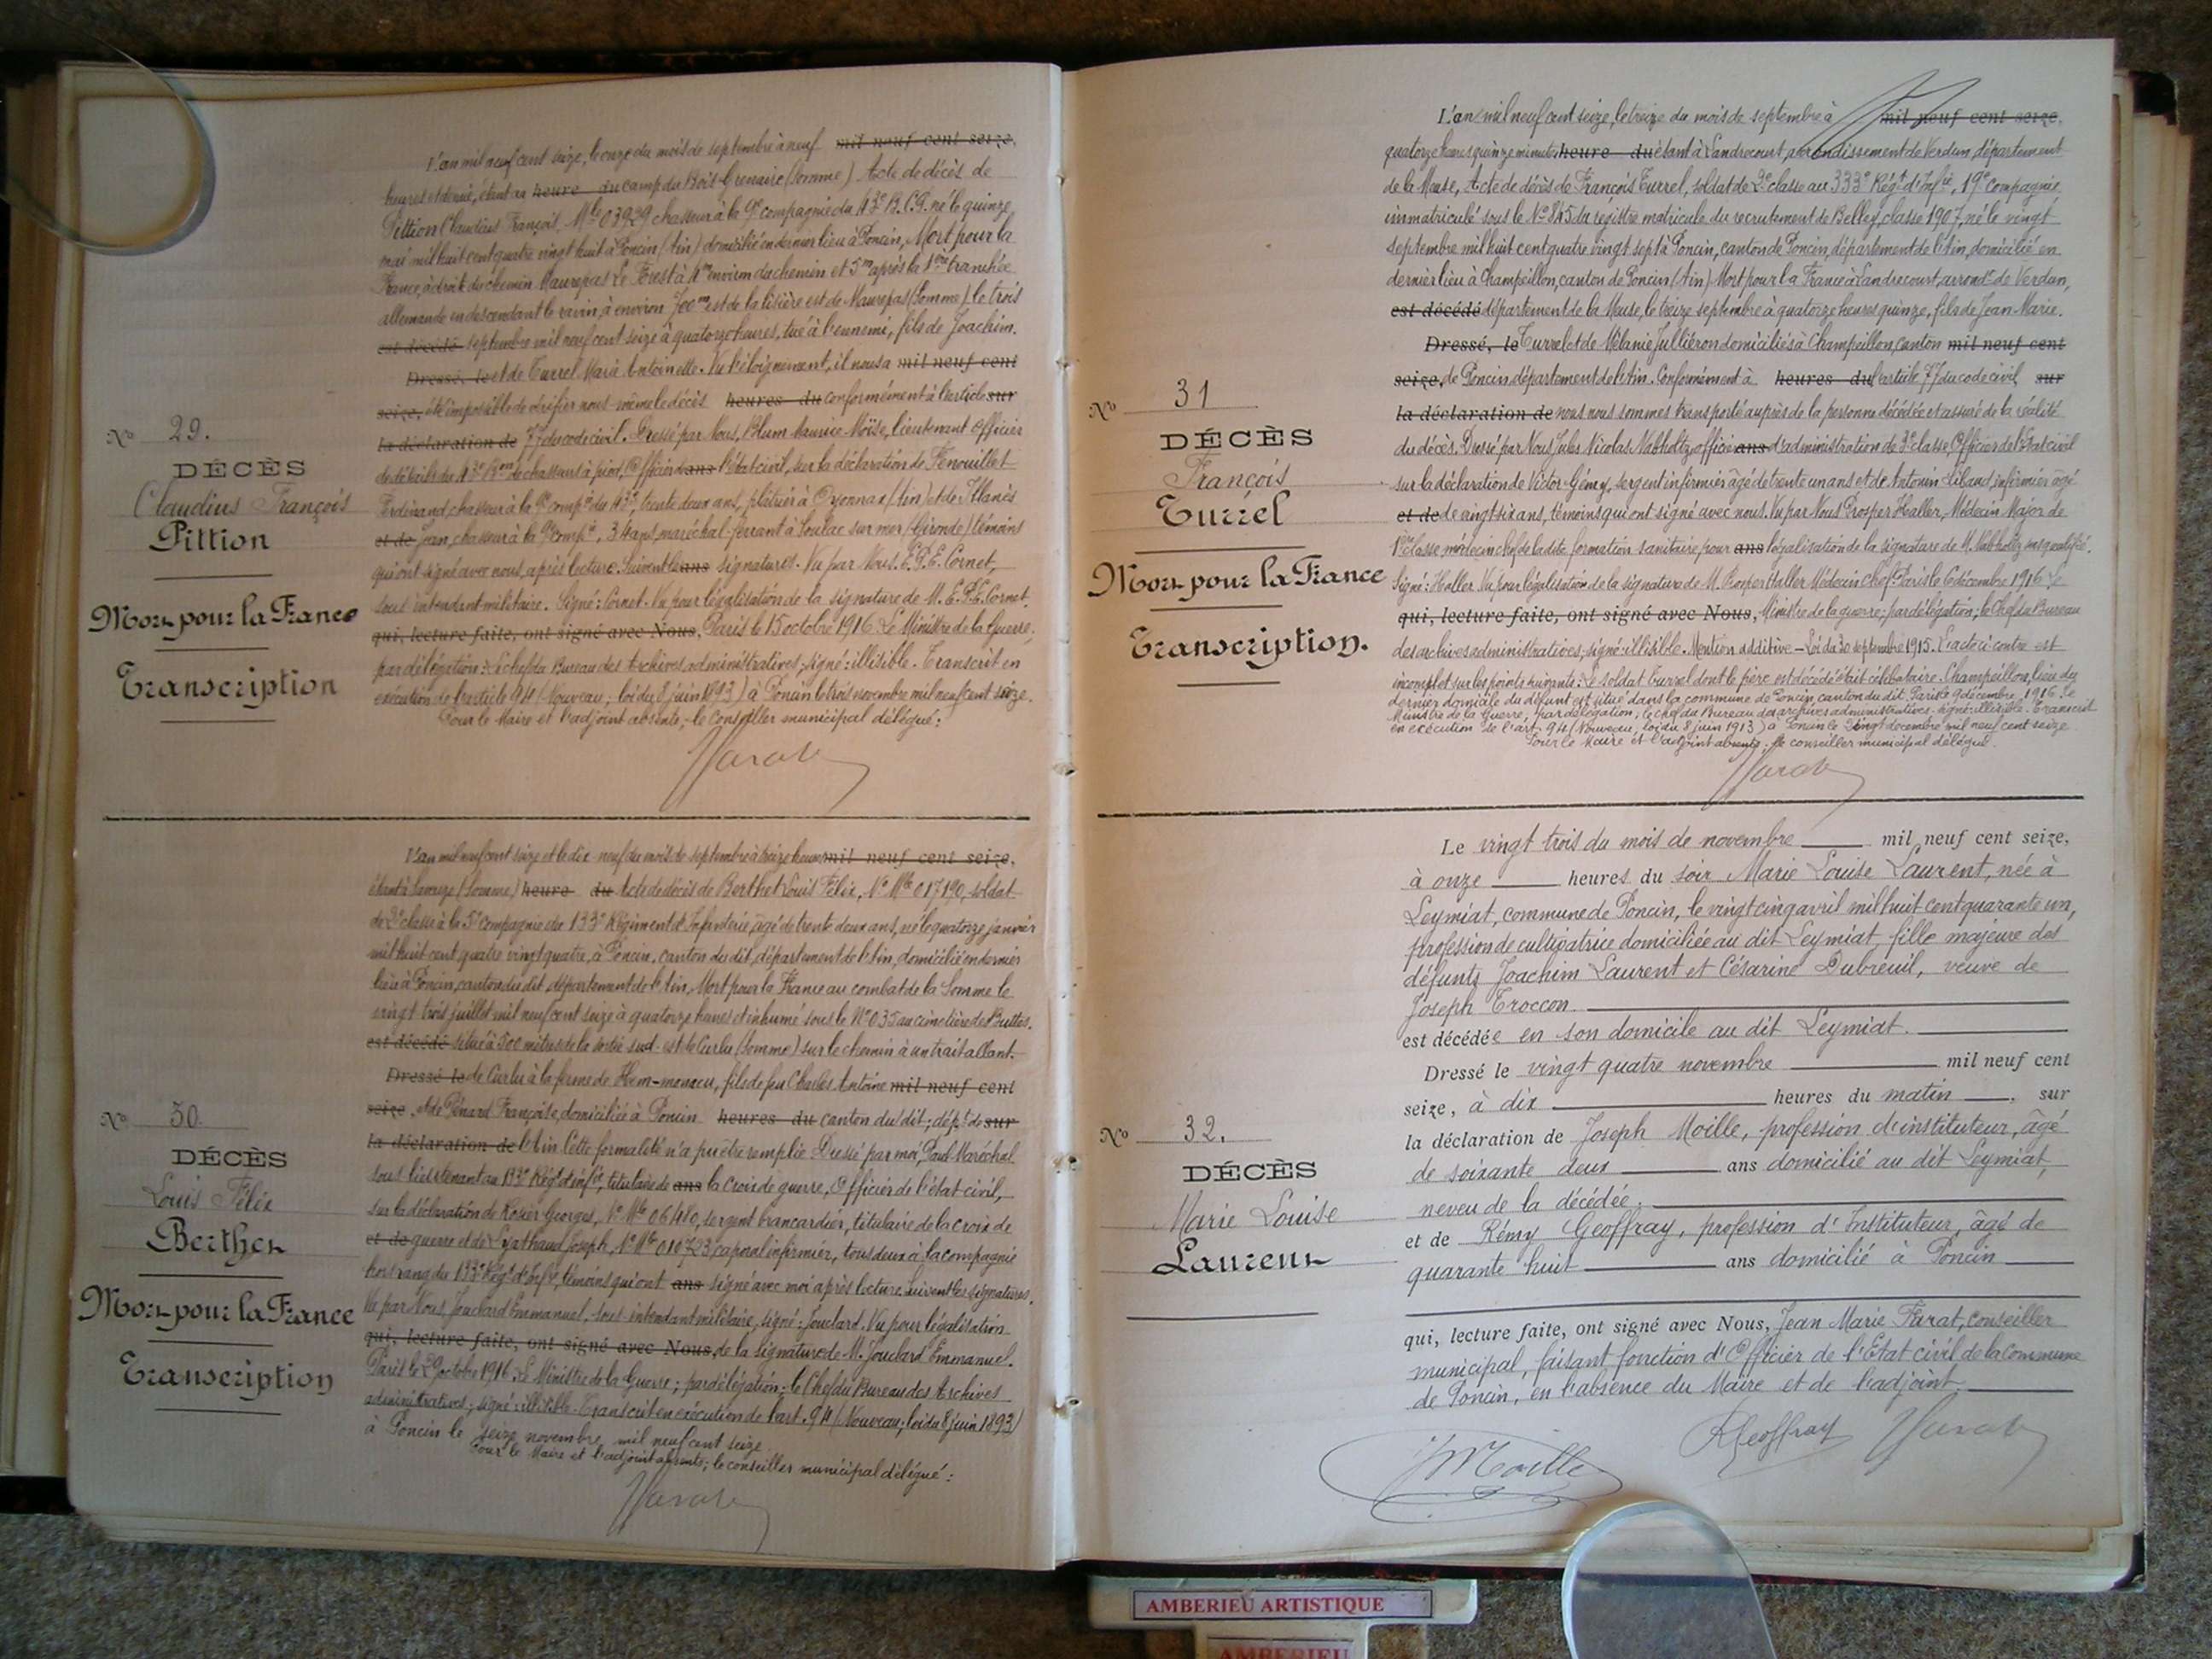 L'an mil neuf cent seize, le onze du mois de septembre à neuf mil neuf cent seize,
heures et demie, étant au heure du camp du Bois Grenaire (Somme) Acte de décès de
Pittion Claudius François, Mle 03929 chasseur à la 9e compagnie du 43e B.C.P. né le quinze
mai mil huit cent quatre vingt huit à Poncin (Ain) domicilié en dernier lieu à Poncin, Mort pour la
France, à droite du chemin Maurepas Le Forest à 4m environ du chemin et 5m après la 1ère tranchée
allemande en descendant le ravin, à environ 700m est de la lisière est de Maurepas (Somme) le trois
est décédé septembre mil neuf cent seize à quatorze heures, tué à l'ennemi, fils de Joachim.
Dressé, le et de Turrel Marie Antoinette. Vu l'éloignement, il nous a mil neuf cent
seize, été impossible de vérifier nous-même le décès heures du conformément à l'article sur
la déclaration de 77 du code civil. Dressé par Nous, Blum Maurice Moïse, lieutenant officier
de détails du 43e Bon de chasseurs à pied, Officier de ans l'état civil, sur la déclaration de Fenouillet
Ferdinand, chasseur à la 9e compie du 43e, trente deux ans, plâtrier à Oyonnax (Ain) et de
et de Jean, chasseur à la 9e compie, 34 ans, maréchal-ferrant à Soulac sur mer (Gironde) témoins
qui ont signé avec nous, après lecture. Suivent les ans signatures. Vu par Nous. E.P.E. Cornet,
sous intendant militaire. Signé: Cornet. Vu pour légalisation de la signature de M. E.P.E. Cornet.
qui, lecture faite, ont signé avec Nous, Paris le 15 octobre 1916. Le Ministre de la Guerre;
par délégation: Le chef du Bureau des Archives administratives; signé: illisible. Transcrit en
exécution de l'article 94 (Nouveau; loi du 8 juin 1893) à Poncin le trois novembre mil neuf cent seize.
Pour le Maire et l'adjoint absents, le conseiller municipal délégué:
No 29.
DÉCÈS
Claudius François
Pittion
Mort pour la France
Transcription
L'an mil neuf cent seize et le dix-neuf du mois de septembre à treize heures mil neuf cent seize,
étant à (Somme) heure du Acte de décès de Berthet Louis Félix, No Mle 017190, soldat
de 2e classe à la 5e compagnie du 133e Régiment d'Infanterie, âgé de trente deux ans, né le quatorze janvier
mil huit cent quatre vingt quatre, à Poncin, canton du dit, département de l'Ain, domicilié en dernier
lieu à Poncin, canton du dit département de l'Ain, Mort pour la France au combat de la Somme le
vingt trois juillet mil neuf cent seize à quatorze heures et inhumé sous le No 035 au cimetière des Buttes.
est décédé situé à 500 mètres de la sortie sud-est de Curlu (Somme) sur le chemin à un trait allant.
Dressé le de Curlu à la ferme de Hem-monacu, fils de feu Charles Antoine mil neuf cent
seize, et de Pénard Françoise, domiciliée à Poncin heures du canton du dit; dépt de sur
la déclaration de l'Ain Cette formalité n'a pu être remplie Dressé par moi, Paul Maréchal
sous lieutenant au 133e Régt d'infie, titulaire de ans la croix de guerre, Officier de l'état civil,
sur la déclaration de Rosier Georges, No Mle 06480, sergent brancardier, titulaire de la croix de
et de guerre et de Joseph, No Mle 010723 caporal infirmier, tous deux à la compagnie
hors rang du 133e Régt d'Infie, témoins qui ont ans signé avec moi après lecture. Suivent les signatures.
Vu par Nous, Jouclard Emmanuel, sous-intendant militaire, signé: Jouclard. Vu pour légalisation
qui, lecture faite, ont signé avec Nous, de la signature de M. Jouclard Emmanuel.
Paris le 29 octobre 1916. Le Ministre de la Guerre; par délégation: le Chef du Bureau des Archives
administratives; signé: illisible. Transcrit en exécution de l'art. 94 (Nouveau; loi du 8 juin 1893)
à Poncin le seize novembre mil neuf cent seize.
Pour le Maire et l'adjoint absents; le conseiller municipal délégué:
No 30.
DÉCÈS
Louis Félix
Berthet
Mort pour la France
Transcription
L'an mil neuf cent seize, le treize du mois de septembre à mil neuf cent seize,
quatorze heures quinze minutes heure du étant à Landrecourt, arrondissement de Verdun, département
de la Meuse, Acte de décès de François Turrel, soldat de 2e classe au 333e Régt d'Infie, 19e compagnie
immatriculé sous le No 845 du registre matricule du recrutement de Belley, classe 1907, né le vingt
septembre mil huit cent quatre vingt sept à Poncin, canton de Poncin, département de l'Ain, domicilié en
dernier lieu à Champeillon, canton de Poncin (Ain) Mort pour la France à Landrecourt, arrondt de Verdun,
est décédé département de la Meuse, le treize septembre à quatorze heures quinze, fils de Jean-Marie.
Dressé, le Turrel et de Mélanie Jullièron domiciliés à Champeillon, canton mil neuf cent
seize, de Poncin département de l'Ain. Conformément à heures du l'article 77 du code civil, sur
la déclaration de nous nous sommes transporté auprès de la personne décédée et assuré de la réalité
du décès. Dressé par Nous Jules Nicolas Nabholtz, officier ans d'administration de 3e classe, Officier de l'État civil
sur la déclaration de Victor Gény, sergent infirmier âgé de trente un ans et de Antonin Liband, infirmier âgé
et de de vingt six ans, témoins qui ont signé avec nous. Vu par Nous Prosper Haller, Médecin Major de
1ère classe médecin chef de la dite formation sanitaire pour ans légalisation de la signature de M. Nabholtz susqualifié.
Signé: Haller. Vu pour légalisation de la signature de M. Prosper Haller Médecin Chef. Paris le 6 décembre 1916. Le
qui, lecture faite, ont signé avec Nous, Ministre de la guerre; par délégation; le Chef du Bureau
des archives administratives; signé: illisible. Mention additive - Loi du 30 septembre 1915. L'acte ci-contre est
incomplet sur les points suivants: Le soldat Turrel dont le père est décédé était célibataire. Champeillon, lieu du
dernier domicile du défunt est situé dans la commune de Poncin, canton du dit. Paris le 9 décembre 1916. Le
Ministre de la Guerre, par délégation, le chef du Bureau des archives administratives. signé: illisible. Transcrit
en exécution de l'art. 94 (Nouveau, loi du 8 juin 1913) à Poncin le vingt décembre mil neuf cent seize
Pour le Maire et l'adjoint absents. Le conseiller municipal délégué.
No 31
DÉCÈS
François
Turrel
Mort pour la France
Transcription.
Le vingt trois du mois de novembre mil neuf cent seize,
à onze heures du soir Marie Louise Laurent, née à
Leymiat, commune de Poncin, le vingt cinq avril mil huit cent quarante un,
profession de cultivatrice domiciliée au dit Leymiat, fille majeure des
défunts Joachim Laurent et Césarine Dubreuil, veuve de
Joseph Troccon.
est décédée en son domicile au dit Leymiat.
Dressé le vingt quatre novembre mil neuf cent
seize, à dix heures du matin, sur
la déclaration de Joseph Moille, profession d'instituteur, âgé
de soixante deux ans domicilié au dit Leymiat,
neveu de la décédée.
et de Rémy Geoffray, profession d'Instituteur, âgé de
quarante huit ans domicilié à Poncin
qui, lecture faite, ont signé avec Nous, Jean Marie Farat, conseiller
municipal, faisant fonction d'Officier de l'Etat civil de la commune
de Poncin, en l'absence du Maire et de l'adjoint.
JMoille RGeoffray Farat
No 32.
DÉCÈS
Marie Louise
Laurent
AMBERIEU ARTISTIQUE
AMBERIEU